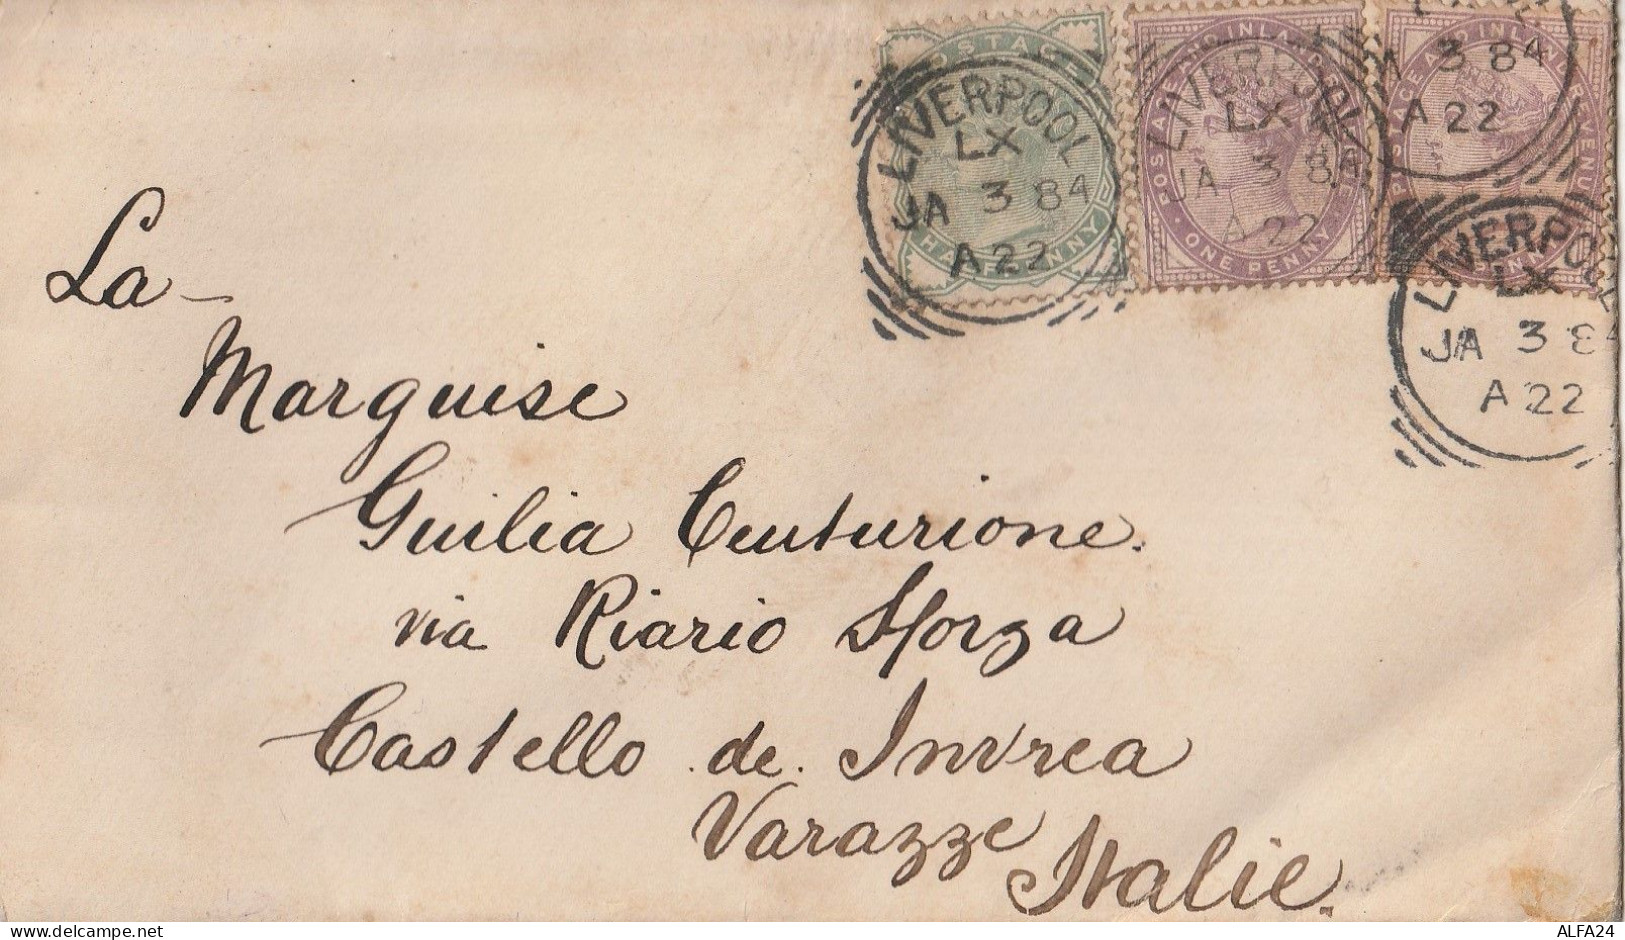 POSTAGE
HALFPENNY
LIVERPOOL
LX
JA 3 84
A 22
POSTAGE AND INLAND REVENUE
ONE PENNY
LIVERPOOL
LX
JA 3 84
A 22
POSTAGE AND INLAND REVENUE
PENNY
A 3 84
A 22
LIVERPOOL
LX
JA 3 84
A 22
La
Marquise
Guilia Centurione.
via Riario Sforza
Castello de. Invrea
Varazze Italie.
delcampe.net
ALFA24